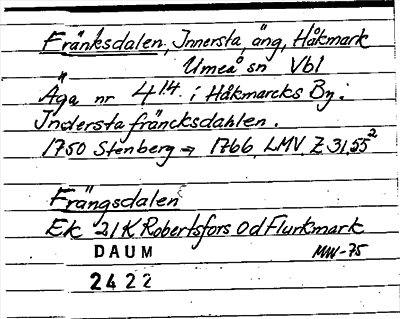 Fränksdalen, Innersta, äng, Håkmark
Umeå sn Vbl
Äga nr 4 14. i Håkmarcks By:
Indersta fräncksdahlen.
1750 Stenberg → 1766, LMV, Z 31,55²
Frängsdalen
Ek 21 K Robertsfors Od Flurkmark
DAUM MW-75
2422